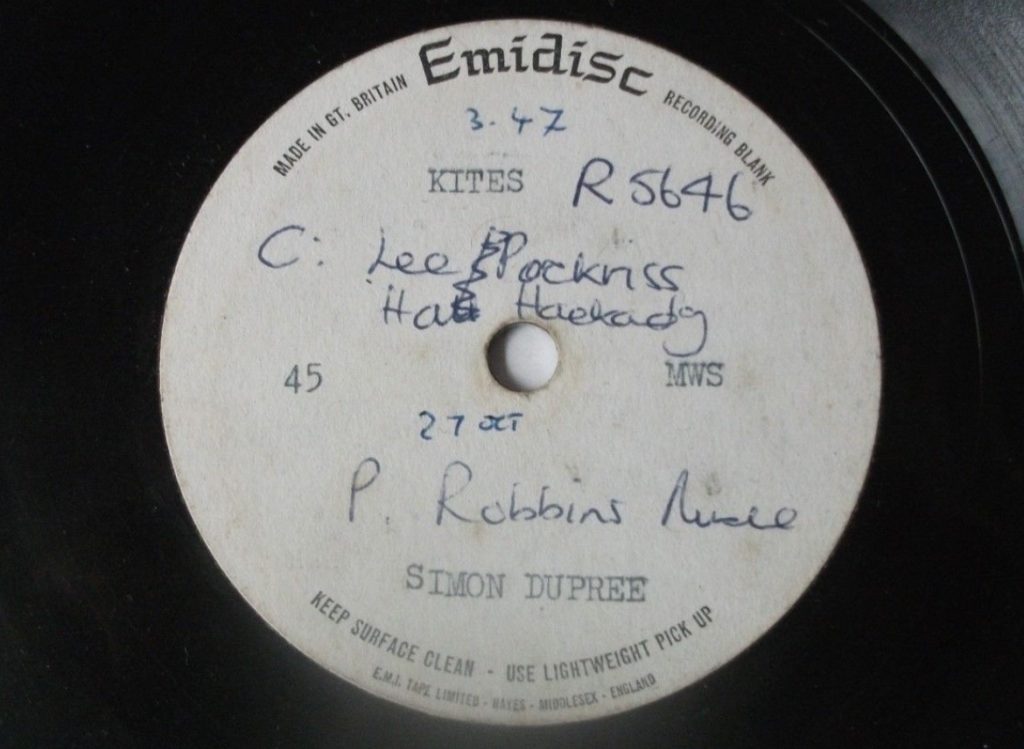 Emidisc
MADE IN GT. BRITAIN
RECORDING BLANK
3.47
KITES R5646
C: Lee Pockriss
Hal Hackady
45 MWS
27 OCT
P. Robbins Music
SIMON DUPREE
KEEP SURFACE CLEAN - USE LIGHTWEIGHT PICK UP
E.M.I. TAPE LIMITED - HAYES - MIDDLESEX - ENGLAND